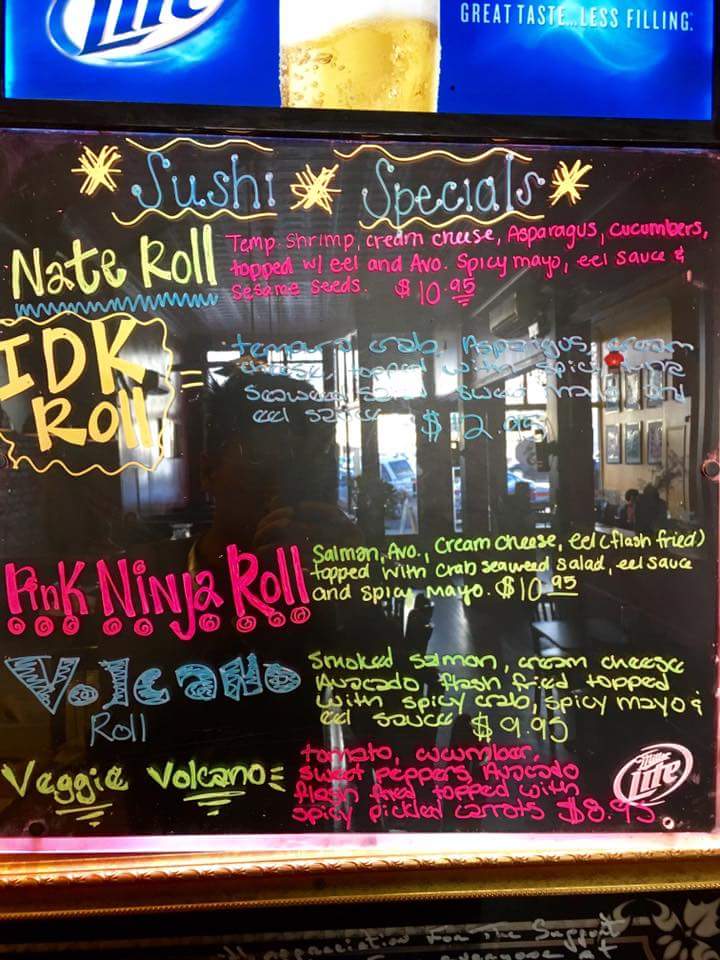 Lite
GREAT TASTE...LESS FILLING.
Sushi Specials
Nate Roll
Temp. Shrimp, cream cheese, Asparagus, cucumbers,
topped w/ eel and Avo. Spicy mayo, eel sauce &
Sesame Seeds. $10.95
IDK
Roll
=
tempura crab, Aspargus, cream
cheese, topped with spicy tuna
Seaweed salad sweet mayo and
eel sauce $12.95
Pink Ninja Roll
Salmon, Avo., Cream Cheese, eel (flash fried)
topped with Crab seaweed Salad, eel sauce
and spicy mayo. $10.95
Volcano
Roll
Smoked salmon, cream cheese
Avocado flash fried topped
with spicy crab, spicy mayo &
eel sauce $9.95
Veggie Volcano
tomato, cucumber,
sweet peppers, Avocado
flash fried topped with
spicy pickled carrots $8.95
Miller
Lite
appreciation For the Support
everyone at